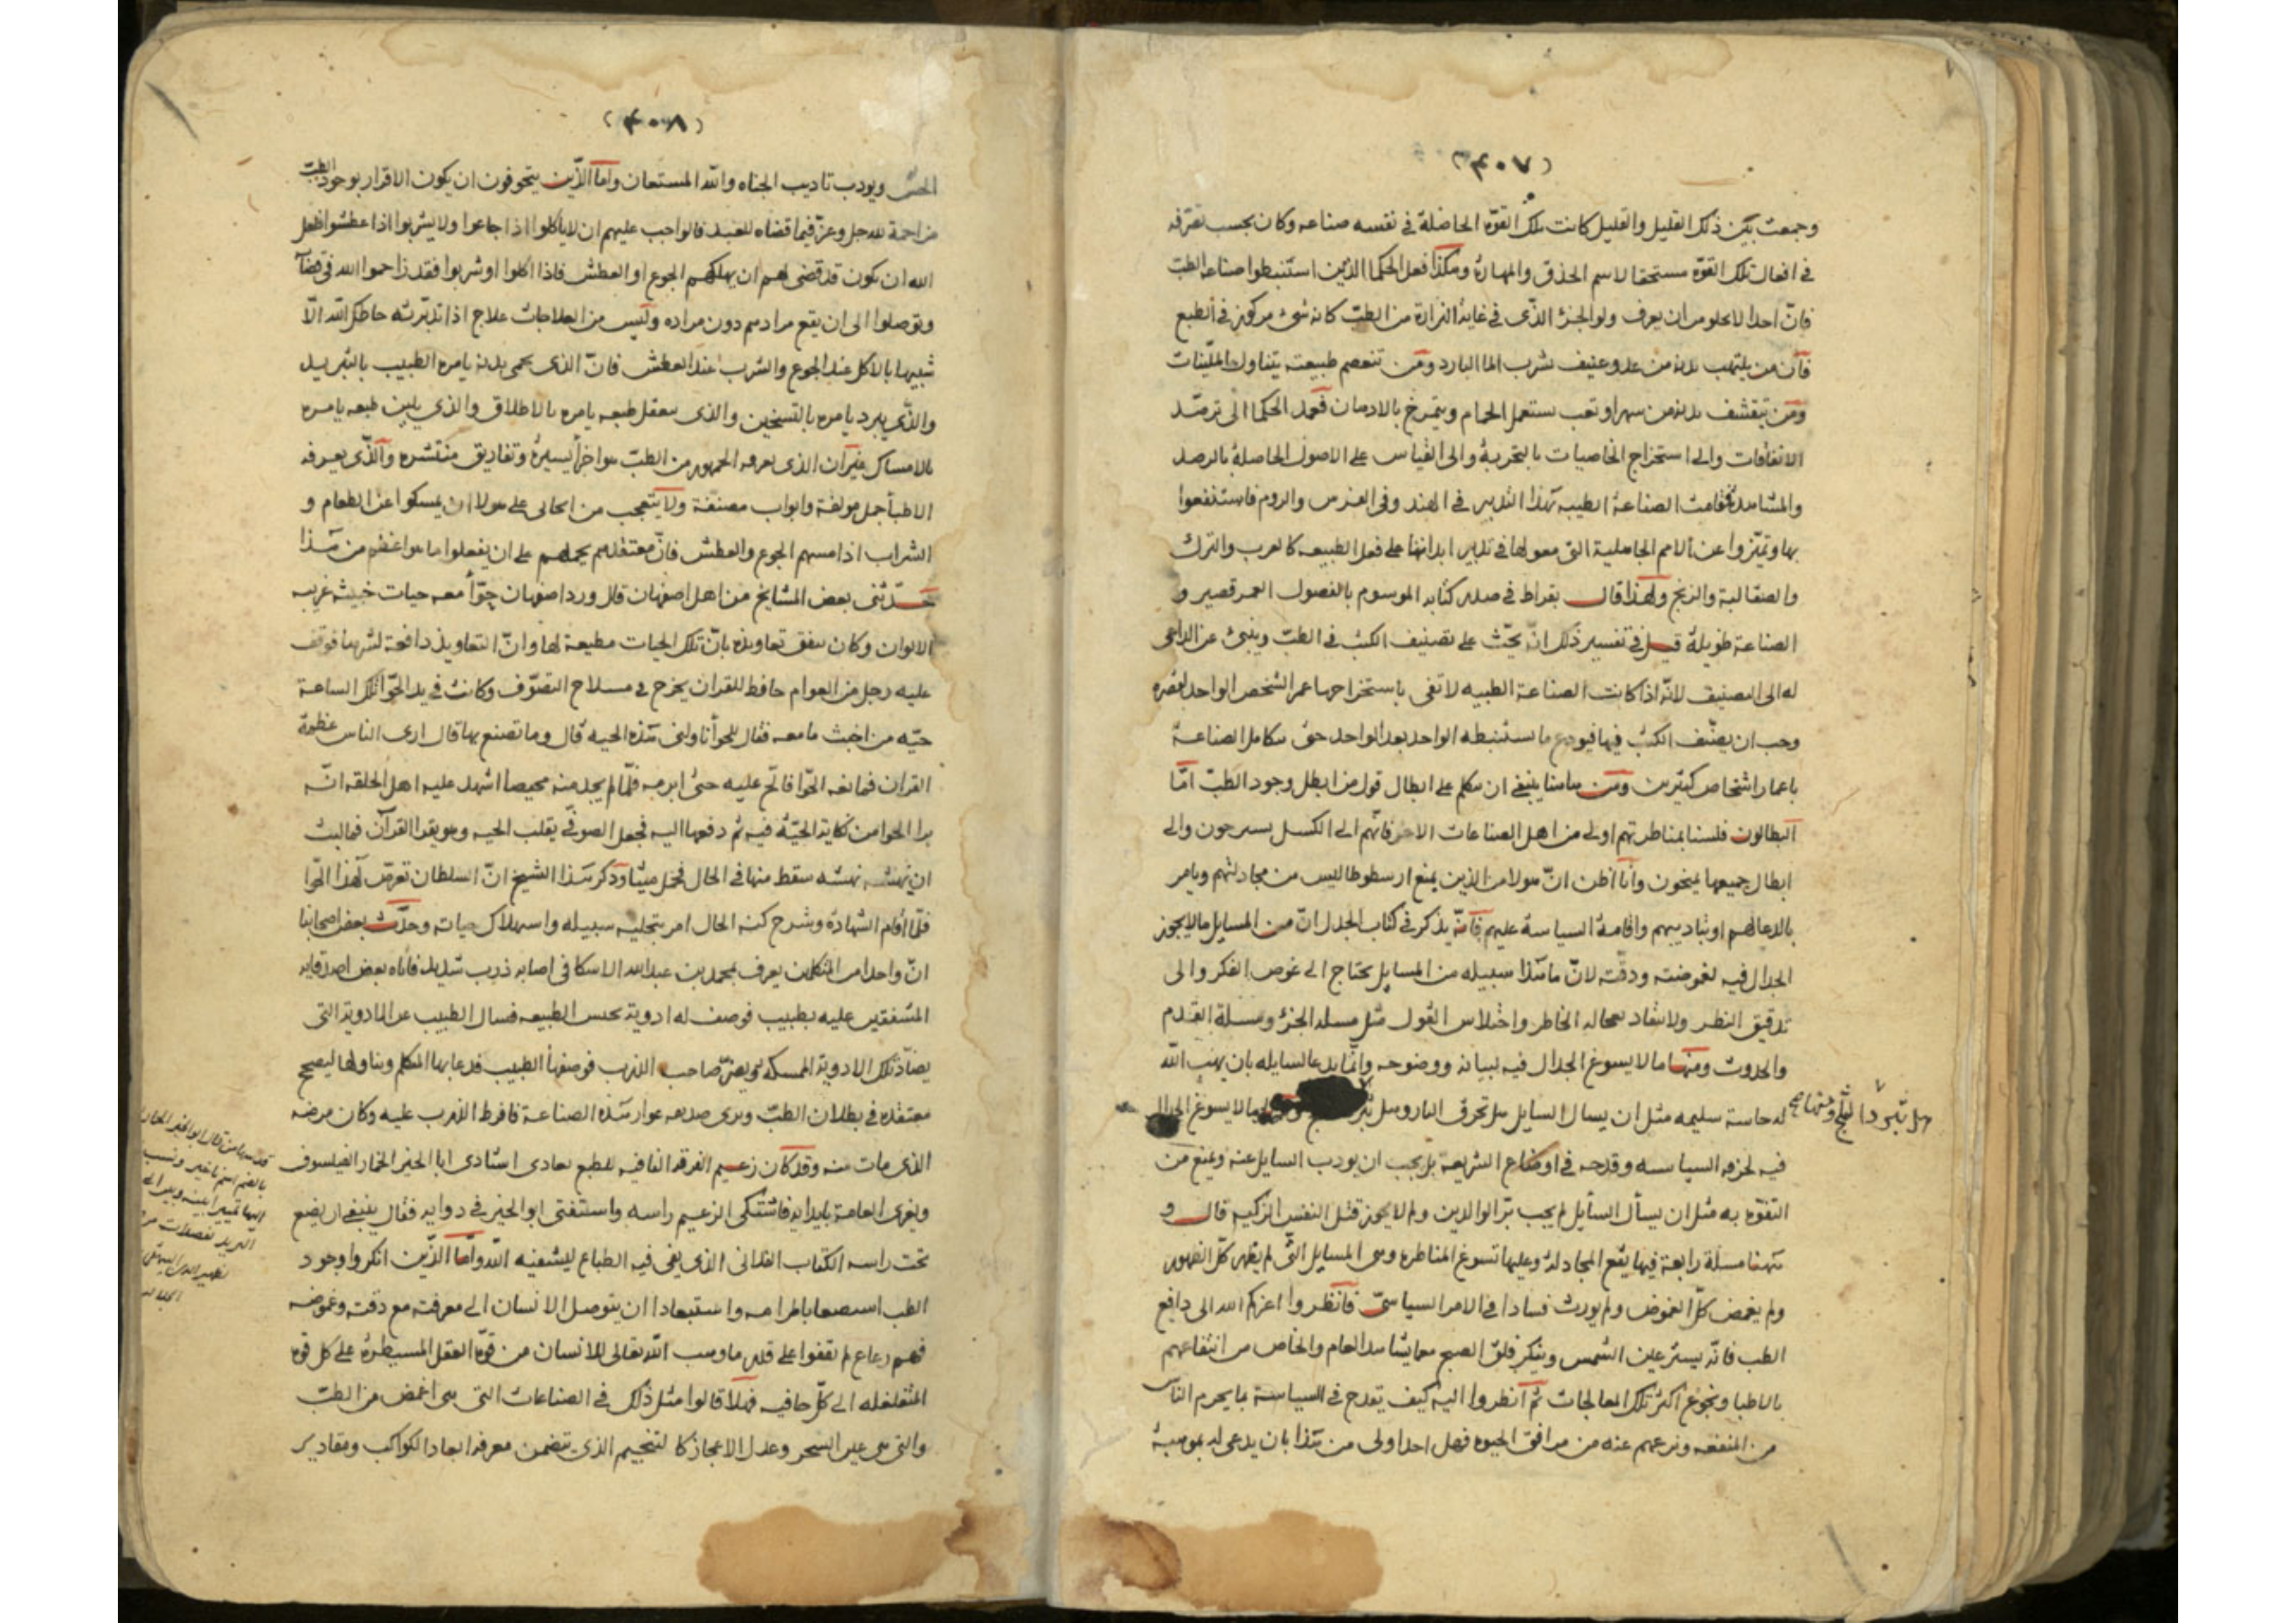 (٤٠٧)
وجمعت بين ذلك القليل والقليل كانت تلك القوة الحاصلة في نفسه صناعه وكان بحسب تصرفه
في افعال تلك القوة مستحقا لاسم الحذق والمهارة وهكذا فعل الحكما الذين استنبطوا صناعة الطب
فانّ احدا لا يخلو من ان يعرف ولو الجزء الذي في غاية النزارة من الطب كانه شيء مركوز في الطبع
فانّ من يلتهب بدنه من عدو عنيف شرب الما البارد ومن تنعصم طبيعته يتناول الملينات
ومن يتقشف بدنه من سهر او تعب يستعمل الحمام ويتمرخ بالادهان فعمد الحكما الى ترصد
الاتفاقات والى استخراج الخاصيات بالتجربة والى القياس على الاصول الحاصلة بالرصد
والمشاهدة فقامت الصناعة الطبيه بهذا التدبير في الهند وفى الفرس والروم فاستنفعوا
بها وتميزوا عن الامم الجاهلية التى معولها في تدبير ابدانها على فعل الطبيعه كالعرب والترك
والصقالبة والزنج ولهذا قال بقراط في صدر كتابه الموسوم بالفصول العمر قصير و
الصناعة طويلة قيل في تفسير ذلك انّه يحثّ على تصنيف الكتب في الطب وينبئ عن الداعى
له الى التصنيف لانّه اذا كانت الصناعة الطبيه لا تفى باستخراجها عمر الشخص الواحد لقصره
وجب ان يصنّف الكتب فيها فيودع ما يستنبطه الواحد بعد الواحد حتى يتكامل الصناعة
باعمار اشخاص كثيرين ومن هاهنا ينبغى ان نتكلم على ابطال قول من ابطل وجود الطب امّا
البطالون فلسنا بمناظرتهم اولى من اهل الصناعات الاخر فانّهم الى الكسل يستريحون والى
ابطال جميعها ينحون وانا اظن انّ هولاء هم الذين يمنع ارسطوطاليس من مجادلتهم ويامر
بالدعا لهم او بتاديبهم واقامة السياسة عليهم فانّه يذكر في كتاب الجدل انّ من المسايل ما لا يجوز
الجدال فيه لغموضته ودقّته لانّ ما هذا سبيله من المسايل يحتاج الى غوص الفكر والى
تدقيق النظر ولا ينقاد بعجالة الخاطر واختلاس القول مثل مسئلة الجزء ومسئلة القدم
والحدوث ومنها ما لا يسوغ الجدال فيه لبيانه ووضوحه وانّما يدعا لسايله بان يهب الله
له حاسة سليمه مثل ان يسال السايل هل تحرق النار وهل ما لا يسوغ الجدال
هل تبرد الثلج ومنها صح
فيه لحرمه السياسه وقدحه في اوضاع الشريعة بل يجب ان يودب السايل عنه ويمنع من
التفوّه به مثل ان يسأل السايل لم يجب برّ الوالدين ولم لا يجوز قتل النفس الزكيه قال و
ههنا مسئلة رابعة فيها يقع المجادلة وعليها تسوغ المناظره وهى المسايل التّى لم يظهر كلّ الظهور
ولم يغمض كلّ الغموض ولم يورث فسادا في الامر السياسىّ فانظروا اعزكم الله الى دافع
الطب فانّه يستر عين الشمس وينكر فلق الصبح مما يشاهد العام والخاص من انتفاعهم
بالاطبا ونجوع اكثر تلك المعالجات ثمّ انظروا اليه كيف يقدح في السياسة بما يحرم الناس
من المنفعه ونزعهم عنه من مرافق الحيوه فهل احد اولى من هذا بان يدعى له بموهبة
(٤٠٨)
الحسّ ويودب تاديب الجناه والله المستعان وامّا الذّين يتخوفون ان يكون الاقرار بوجود الطب
مزاحمة لله جل وعزّ فيما قضاه للعبد فالواجب عليهم ان لا ياكلوا اذا جاعوا ولا يشربوا اذا عطشوا فلعل
الله ان يكون قد قضى لهم ان يهلكهم الجوع او العطش فاذا اكلوا او شربوا فقد زاحموا الله في قضآ
وتوصلوا الى ان يقع مرادهم دون مراده وليس من العلاجات علاج اذا تدبّرته حاطك الله الّا
شبيها بالاكل عند الجوع والشرب عند العطش فانّ الذى يحمى بدنه يامره الطبيب بالتبريد
والذّي يبرد يامره بالتسخين والذى يعقل طبعه يامره بالاطلاق والذي يلين طبعه يامره
بالامساك غير ان الذى يعرفه الجمهور من الطب هو اجزأ يسيرة وتفاريق منتشره والذّى يعرفه
الاطبأ جمل مولفة وابواب مصنفة ولا يتعجب من اتحالى على هولا ان يمسكوا عن الطعام و
الشراب اذا مسهم الجوع والعطش فانّ معتقدهم يحملهم على ان يفعلوا ما هو اعظم من هذا
حدّثنى بعض المشايخ من اهل اصفهان قال ورد اصفهان حوّأ معه حيات خبيثه غريبه
الالوان وكان ينفق تعاويذه بانّ تلك الحيات مطيعة لها وانّ التعاويذ دافعة لشرها فوقف
عليه رجل من العوام حافظ للقران يخرج في مسلاح التصوّف وكانت في يد الحوّا تلك الساعة
حيّه من اخبث ما معه فقال للحوأ ناولنى هذه الحيه قال وما تصنع بها قال ارى الناس عظمة
القران فمانعه الحوّا فالحّ عليه حتى ابرمه فلمّا لم يجد منه محيصا اشهد عليه اهل الحلقه انّه
برا الحوا من نكاية الحيّة فيه ثم دفعها اليه فجعل الصوفى يقلب الحيه وهو يقرا القرآن فما لبث
ان نهشته نهشه سقط منها في الحال فحمل ميتا وذكر هذا الشيخ انّ السلطان تعرض لهذا الحوّا
فلمّا أقام الشهادة وشرح كنه الحال امر بتخليه سبيله واستهلاك حياته وحدّث بعض اصحابنا
انّ واحدا من المتكلمين يعرف بمحمد بن عبد الله الاسكافى اصابه ذرب شديد فاتاه بعض اصدقايه
المشفقين عليه بطبيب فوصف له ادوية يحبس الطبيعه فسال الطبيب عن الادوية التى
يضآدّ تلك الادوية الممسكه ويضرّ صاحب الذرب فوصفها الطبيب فدعا بها المتكلم وتناولها ليصحح
معتقده في بطلان الطب ويرى صديعه عوار هذه الصناعة فافرط الذرب عليه وكان مرضه
الذى مات منه وقد كان زعيم الفرقه النافيه للطبع يعادى استادى ابا الخير الخمار الفيلسوف
ويغرى العامة بايدايه فاشتكى الزعيم راسه واستفتى ابو الخير في دوايه فقال ينبغى ان يضع
تحت راسه الكتاب الفلانى الذى نفى فيه الطباع ليشفيه الله وامّا الذّين انكروا وجود
الطب استصعابا لمرامه واستبعادا ان يتوصل الانسان الى معرفته مع دقته وغموضه
فهم رعاع لم يقفوا على قدر ما وهب الله تعالى للانسان من قوّة العقل المسيطرة على كل قوة
المتغلغله الى كلّ خافيه فهلّا قالوا مثل ذلك في الصناعات التى هى اغمض من الطب
والتى هى عين السحر وعدل الاعجاز كالتنجيم الذي يتضمن معرفة ابعاد الكواكب ومقادير